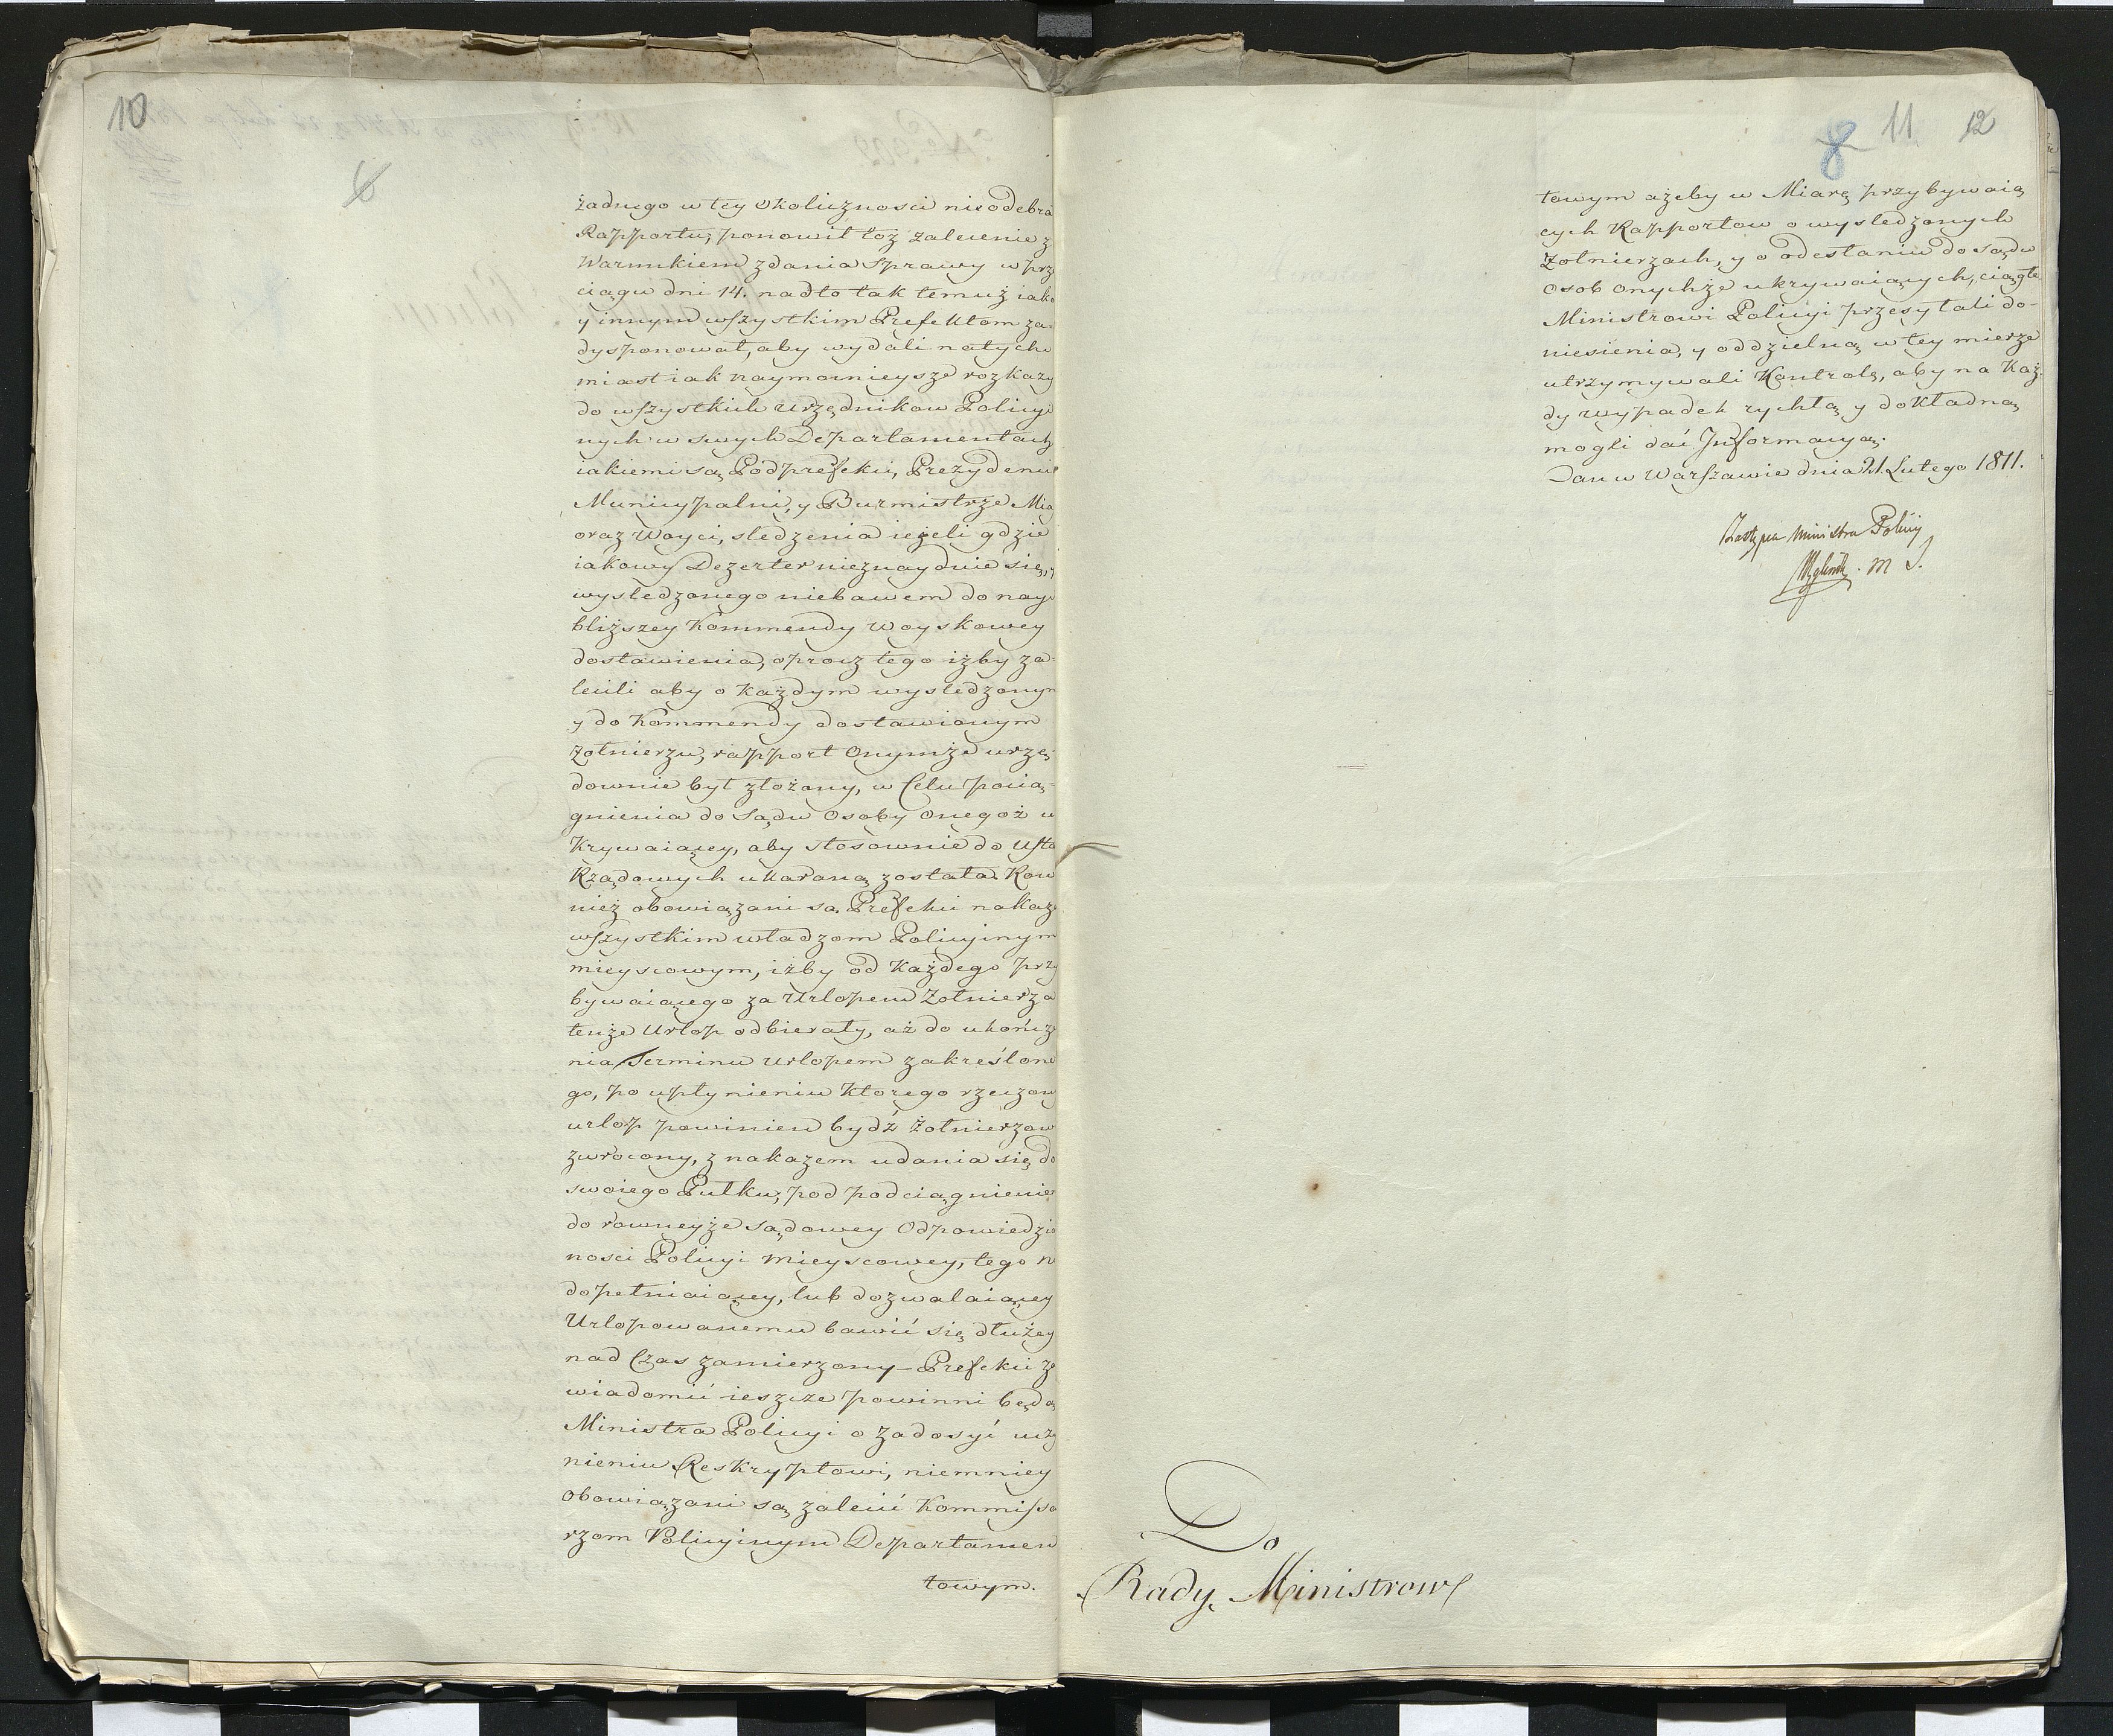 10
6
żadnego w tey okoliczności nieodebra
Rapportu, ponowił toż zalecenie z
Warunkiem zdania Sprawy w prze
ciągu dni 14. nadto tak temuż iako
y innym wszystkim Prefektom za-
dysponował, aby wydali natych
miast iak naymocnieysze rozkazy
do wszystkich urzędnikow Policyi
nych w swych Departamentach
iakiemi są Pódprefekci, Prezydenci
Municypalni, y Burmistrze Mia
oraz Woyci, sledzenia ieżeli gdzie
iakowy Dezerter nieznaydnie się, y
wysledzonego niebawem do nay
bliższey Kommendy woyskowey
dostawienia, oprocz tego iżby za-
lecili aby o każdym wysledzonym
y do Kommendy dostawionym
Żołnierzu, rapport Onymże urzę-
downie był złożany, w Celu pocią-
gnienia do Sądu Osoby onegoż u
krywaiącey, aby stosownie do Usta
Rządowych ukaraną została. Row
nież obowiązani są Prefekci nakaz
wszystkim władzom Policyinym
mieyscowym, iżby od każdego przy
bywaiącego za Urlopem Żołnierza
tenże Urlop odbierały, aż do ukończe
nia Terminu urlopem zakreślone
go, po upłynieniu którego rzeczony
urlop powinien bydź Żołnierzow
zwrócony, z nakazem udania się do
swoiego Pułku, pod podciągnienie
do rowneyże sądowey Odpowiedzial
ności Policyi mieyscowey, tego n
dopełniaiącey, lub dozwalaiącey
Urlopowanemu bawić się dłużey
nad Czas zamierzony – Prefekci za
wiadomić ieszcze powinni będą
Ministra Policyi o zadosyć uczy
nieniu Reskryptowi, niemniey
obowiązani są zalecić Kommissa
rzom Policyinym Departamen
towym.
8 11 12
towym ażeby w Miarę przybywaią
cych Rapportow o wysledzonych
Żołnierzach, y o odesłaniu do sądu
osob onychże ukrywaiących, ciągłe
Ministrowi Policyi przesyłali do-
niesienia, y oddzielną w tey mierze
utrzymywali Kontrolę, aby na Każ-
dy wypadek rychłą y dokładną
mogli dać Informacyą.
Dan w Warszawie dnia 21. Lutego 1811.
Zastępca Ministra Policyi
M S.
Do
Rady Ministrow